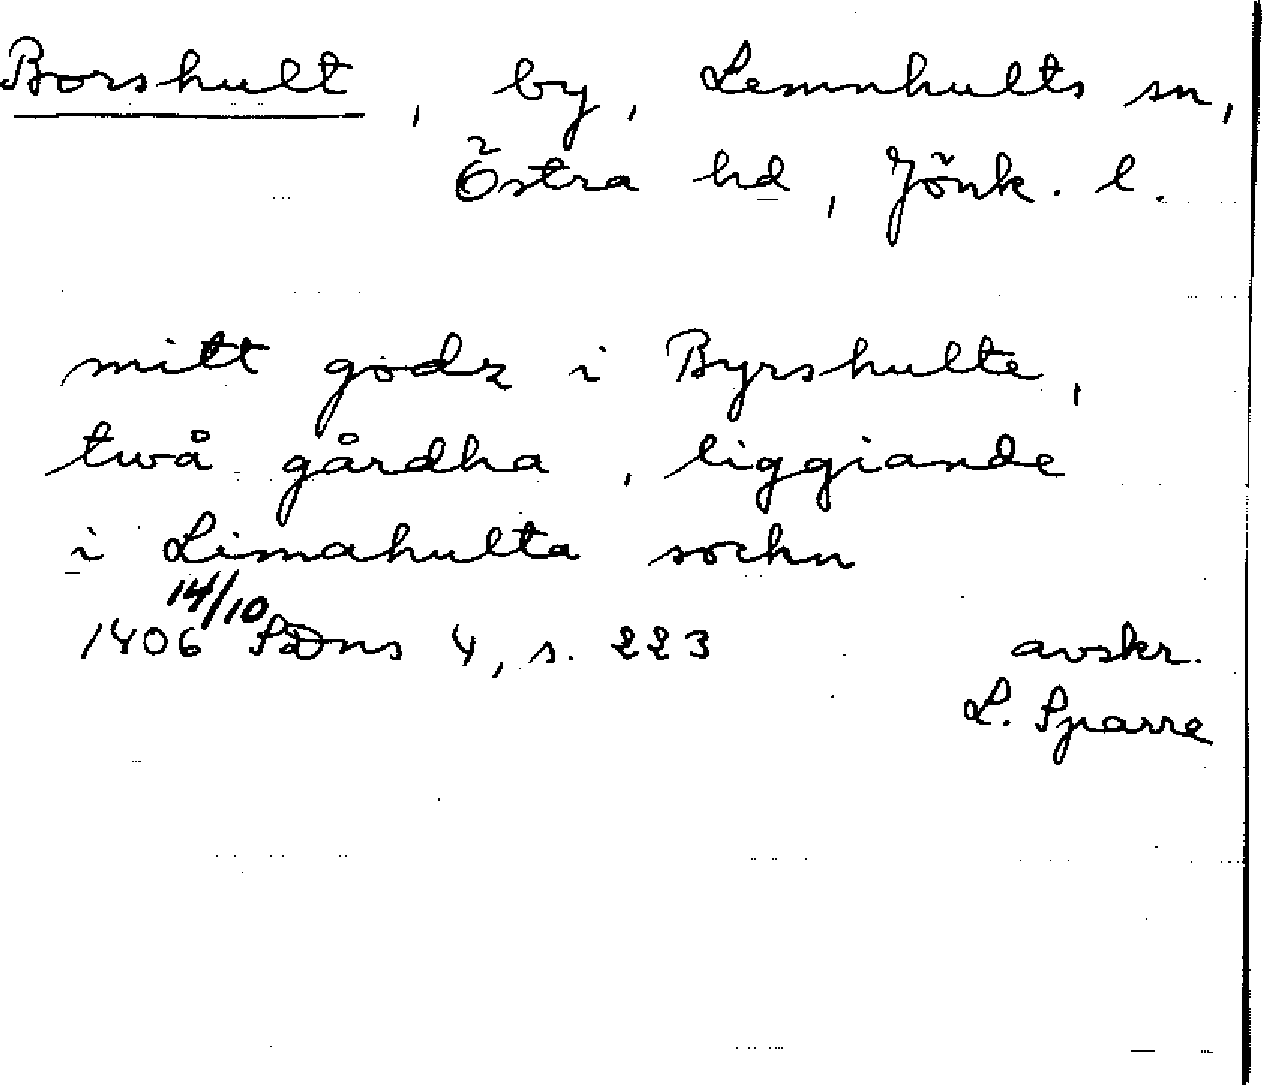 Borshult, by, Lemnhults sn,
Östra hd, Jönk. l.
mitt godz i Byrshulte,
twå gårdha, liggiande
i Limahulta sochn
1406 14/10 SDns 4, s. 223 avskr.
L. Sparre